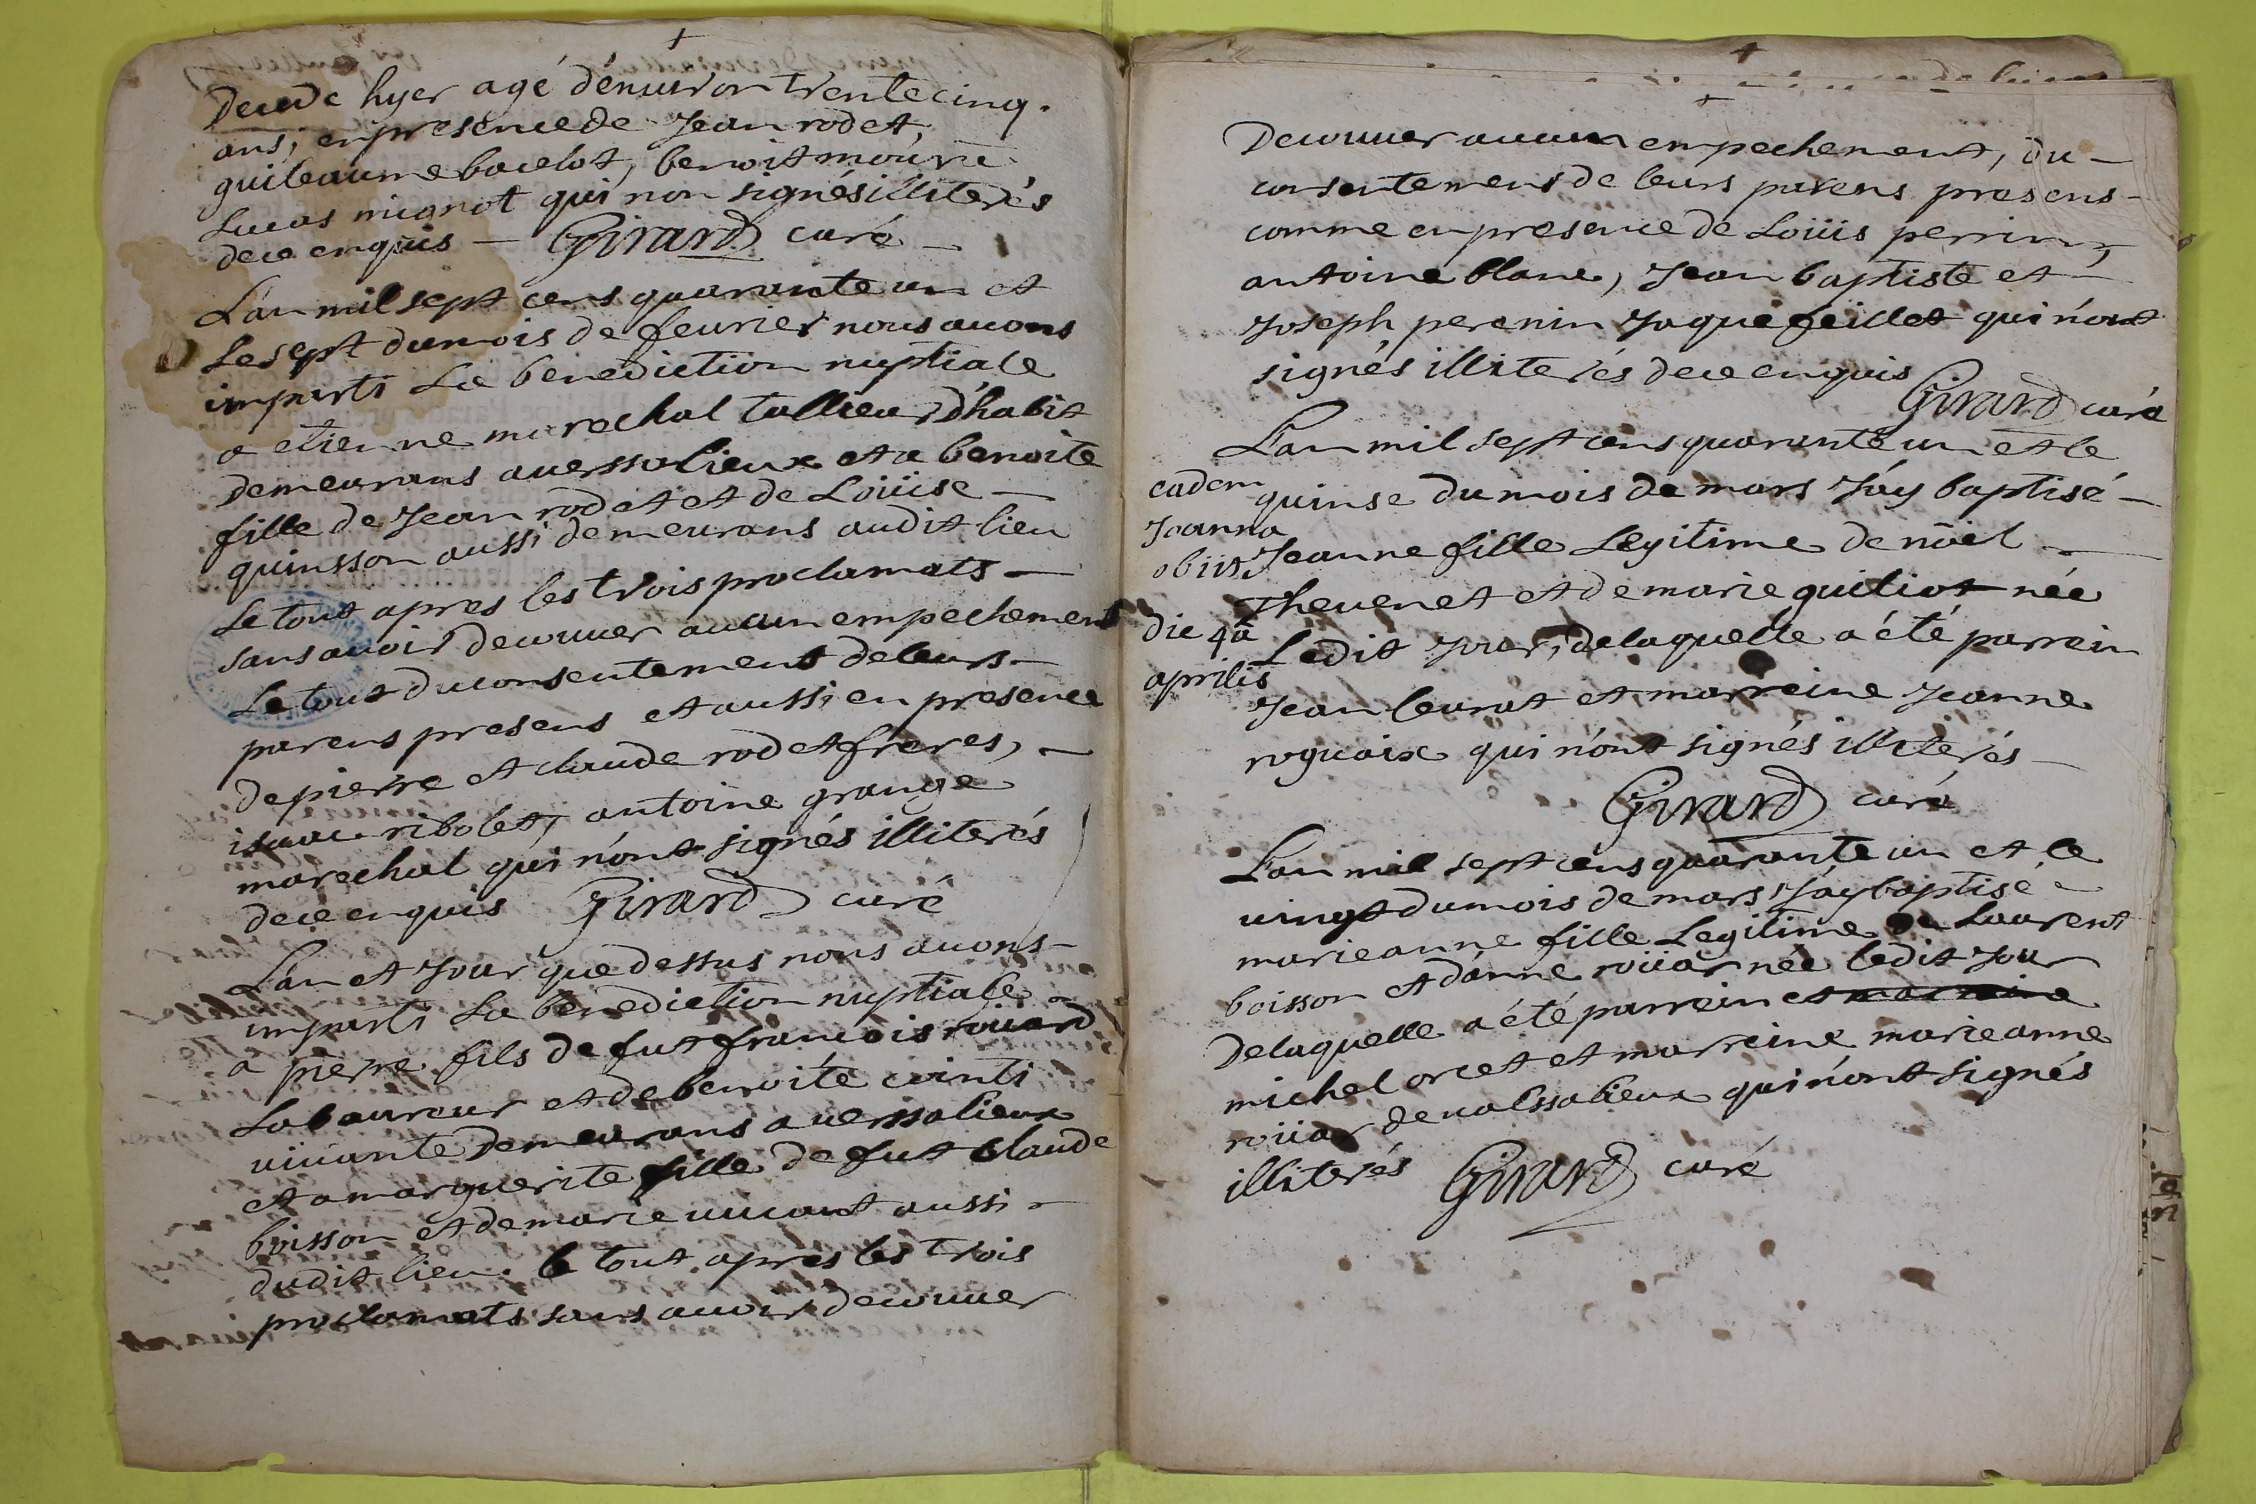 Decede hyer agé d'enuiron trente cinq.
ans, en presence de Jean rodet,
guileaume bacelot, benoit
Lucas mignot qui non signés illiterés
de ce enquis — Girard curé —
L'an mil sept cens quarante un et
Le sept du mois de feurier nous auons
imparti La benediction nuptiale
a etienne marechal tallieur d'habit
demeurans a uerssalieux et a benoite
fille de Jean rodet et de Loüise —
quinsson aussi demeurans audit lieu
Le tout apres les trois proclamats —
sans auoir decouuer aucun empechement
Le tout du consentement de leurs —
parens presens et aussi en presence
de pierre et claude rodet freres, —
isaac ribolet, antoine grange
marechal qui n'ont signés illiterés
de ce enquis Girard curé
L'an et Jour que dessus nous auons —
imparti La benediction nuptiale —
a pierre fils de fut francois roüard
Laboureur et de benoite
uiuante demeurans a uerssalieux
et a marguerite fille de fut Claude
boisson et de marie uiuant aussi —
dudit lieu. le tout apres les trois
proclamats sans auoir decouuer
Decouuer aucun empechement, du —
consentement de leurs parens presens —
comme en presence de Loüis
antoine blanc, Jean baptiste et —
Joseph perenin Jaque feillet qui n'ont
signés illiterés de ce enquis
Girard curé
L'an mil sept cens quarante un et le
quinse du mois de mars J'ay baptisé —
Jeanne fille Legitime de nöel —
Theuenet et de marie guiliot née
Ledit Jour, de laquelle a été parrein
Jean leurat et marreine Jeanne
qui n'ont signés illiterés —
Girard curé
eadem
Joanna
obiit
die 4a
aprilis
L'an mil sept cens quarante un et le
uingt du mois de mars J'ay baptisé —
marie anne fille Legitime de Laurent
boisson et d'anne roüar née ledit Jour
De laquelle a été parrein et marreine
michel orcet et marreine marie anne
roüar de ualssalieux qui n'ont signés
illiterés Girard curé